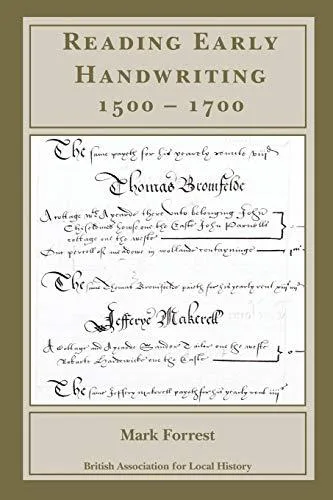 READING EARLY
HANDWRITING
1500 – 1700
The same payeth for his yearly rente viijd
Thomas Bromfelde
A cottage wth Ayearde there unto belonging John
house one the Easte John Parnolls
cottage one the weste
One percell of meadowe in
The same Thomas Bromfielde paieth for his yearly rent
Jefferye Makerell
A Cottage and Ayearde Tailer one the weste
one the Easte
The same Jeffery makerell payeth for his yearly rent
Mark Forrest
British Association for Local History